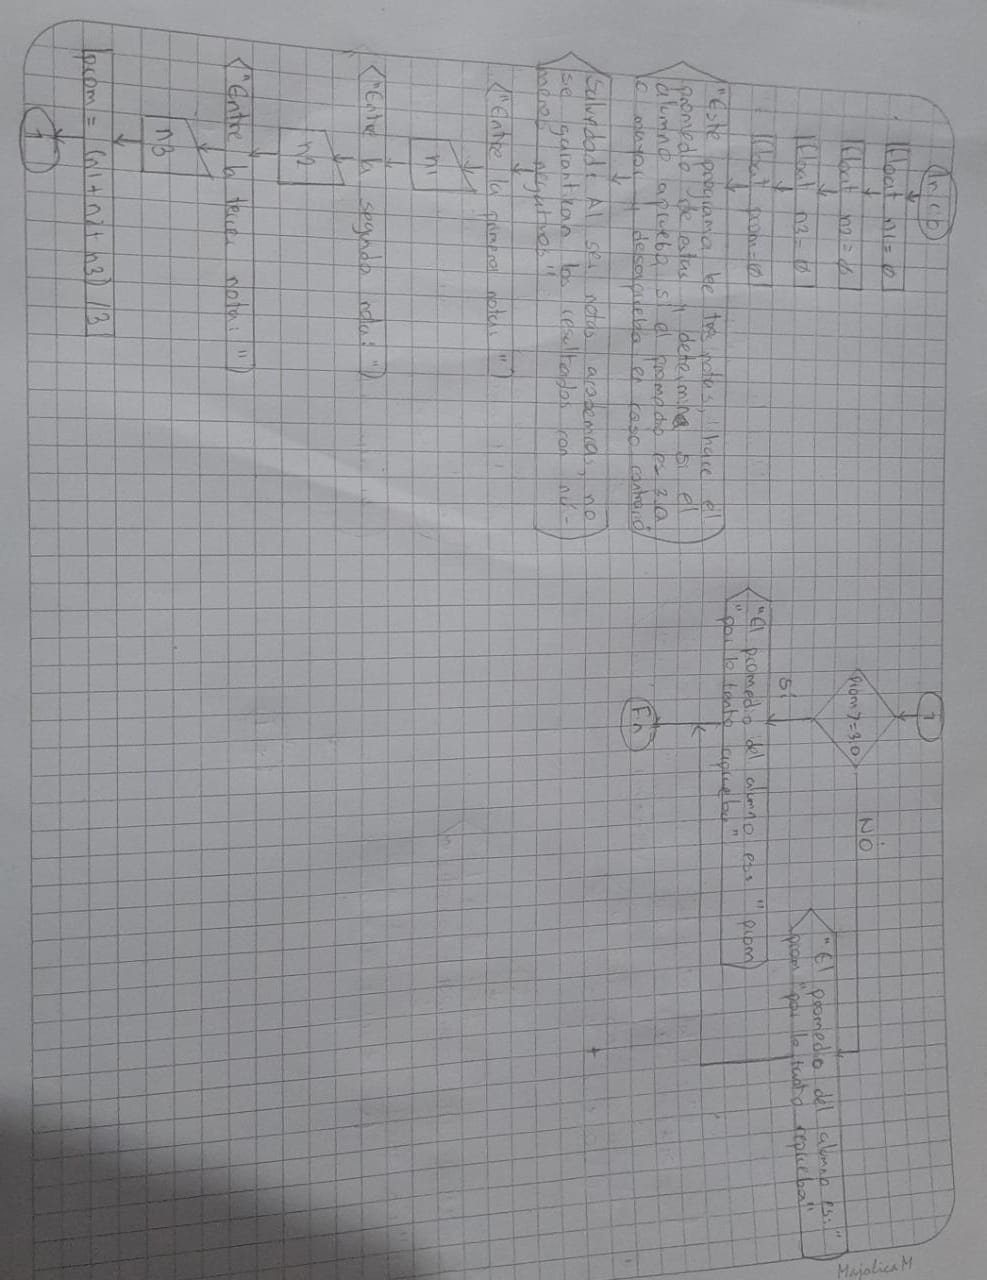 Inicio
float n1 = 0
float n2 = 0
float n3 = 0
float prom = 0
"Este programa lee tres notas, hace el
promedio de estas y determina si el
alumno aprueba si el promedio es 3.0
o mayor y desaprueba en caso contrario
Salvedad: Al ser notas academicas, no
se garantizan los resultados con nú-
meros negativos"
"Entre la primera nota: "
n1
"Entre la segunda nota: "
n2
"Entre la tercera nota: "
n3
prom = (n1 + n2 + n3) / 3
1
1
prom >= 3.0
Sí
NO
"El promedio del alumno es: " prom
"por lo tanto aprueba"
"El promedio del alumno es: "
prom "por lo tanto reprueba"
Fin
Majolica M